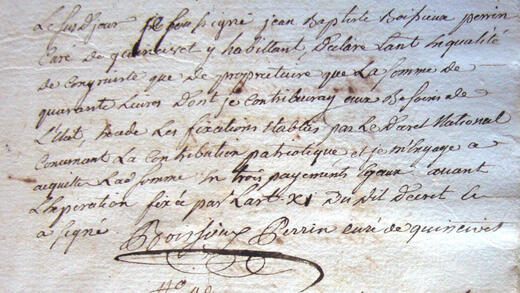 Le susd jour je soussigné jean Baptiste Boissieux perrin
Curé de quincivet y habittant, Declare tant enqualité
de Congruiste que de propriétaire que La somme de
quarante Livres Dont je Contriburay aux Besoins de
L'Etat, les fixations Etablies par Le Decret National
Concernant La Contribution patriotique et je m'engage a
aquitter Lad somme En trois payements Egaux avant
L'Expiration fixée par L'art. XI Du dit Decret Et
a signé
Boissieux Perrin curé de quincivet